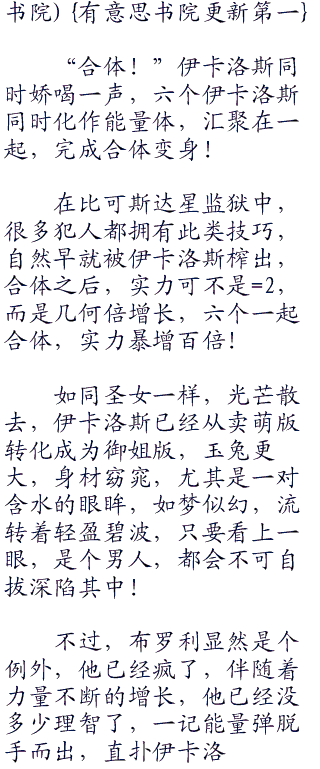 书院) {有意思书院更新第一}
“合体！”伊卡洛斯同
时娇喝一声，六个伊卡洛斯
同时化作能量体，汇聚在一
起，完成合体变身！
在比可斯达星监狱中，
很多犯人都拥有此类技巧，
自然早就被伊卡洛斯榨出，
合体之后，实力可不是=2，
而是几何倍增长，六个一起
合体，实力暴增百倍！
如同圣女一样，光芒散
去，伊卡洛斯已经从卖萌版
转化成为御姐版，玉兔更
大，身材窈窕，尤其是一对
含水的眼眸，如梦似幻，流
转着轻盈碧波，只要看上一
眼，是个男人，都会不可自
拔深陷其中！
不过，布罗利显然是个
例外，他已经疯了，伴随着
力量不断的增长，他已经没
多少理智了，一记能量弹脱
手而出，直扑伊卡洛